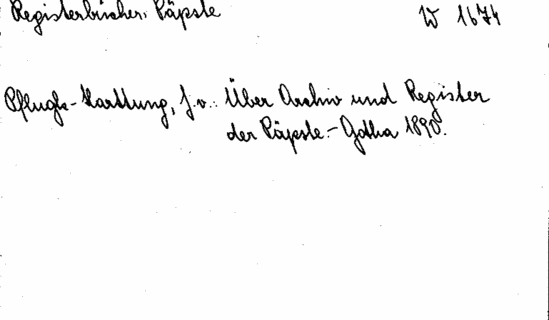 Registerbücher, Päpste W 1674
Pflugk-Harttung, J. v.: Über Archiv und Register
der Päpste.- Gotha 1890.